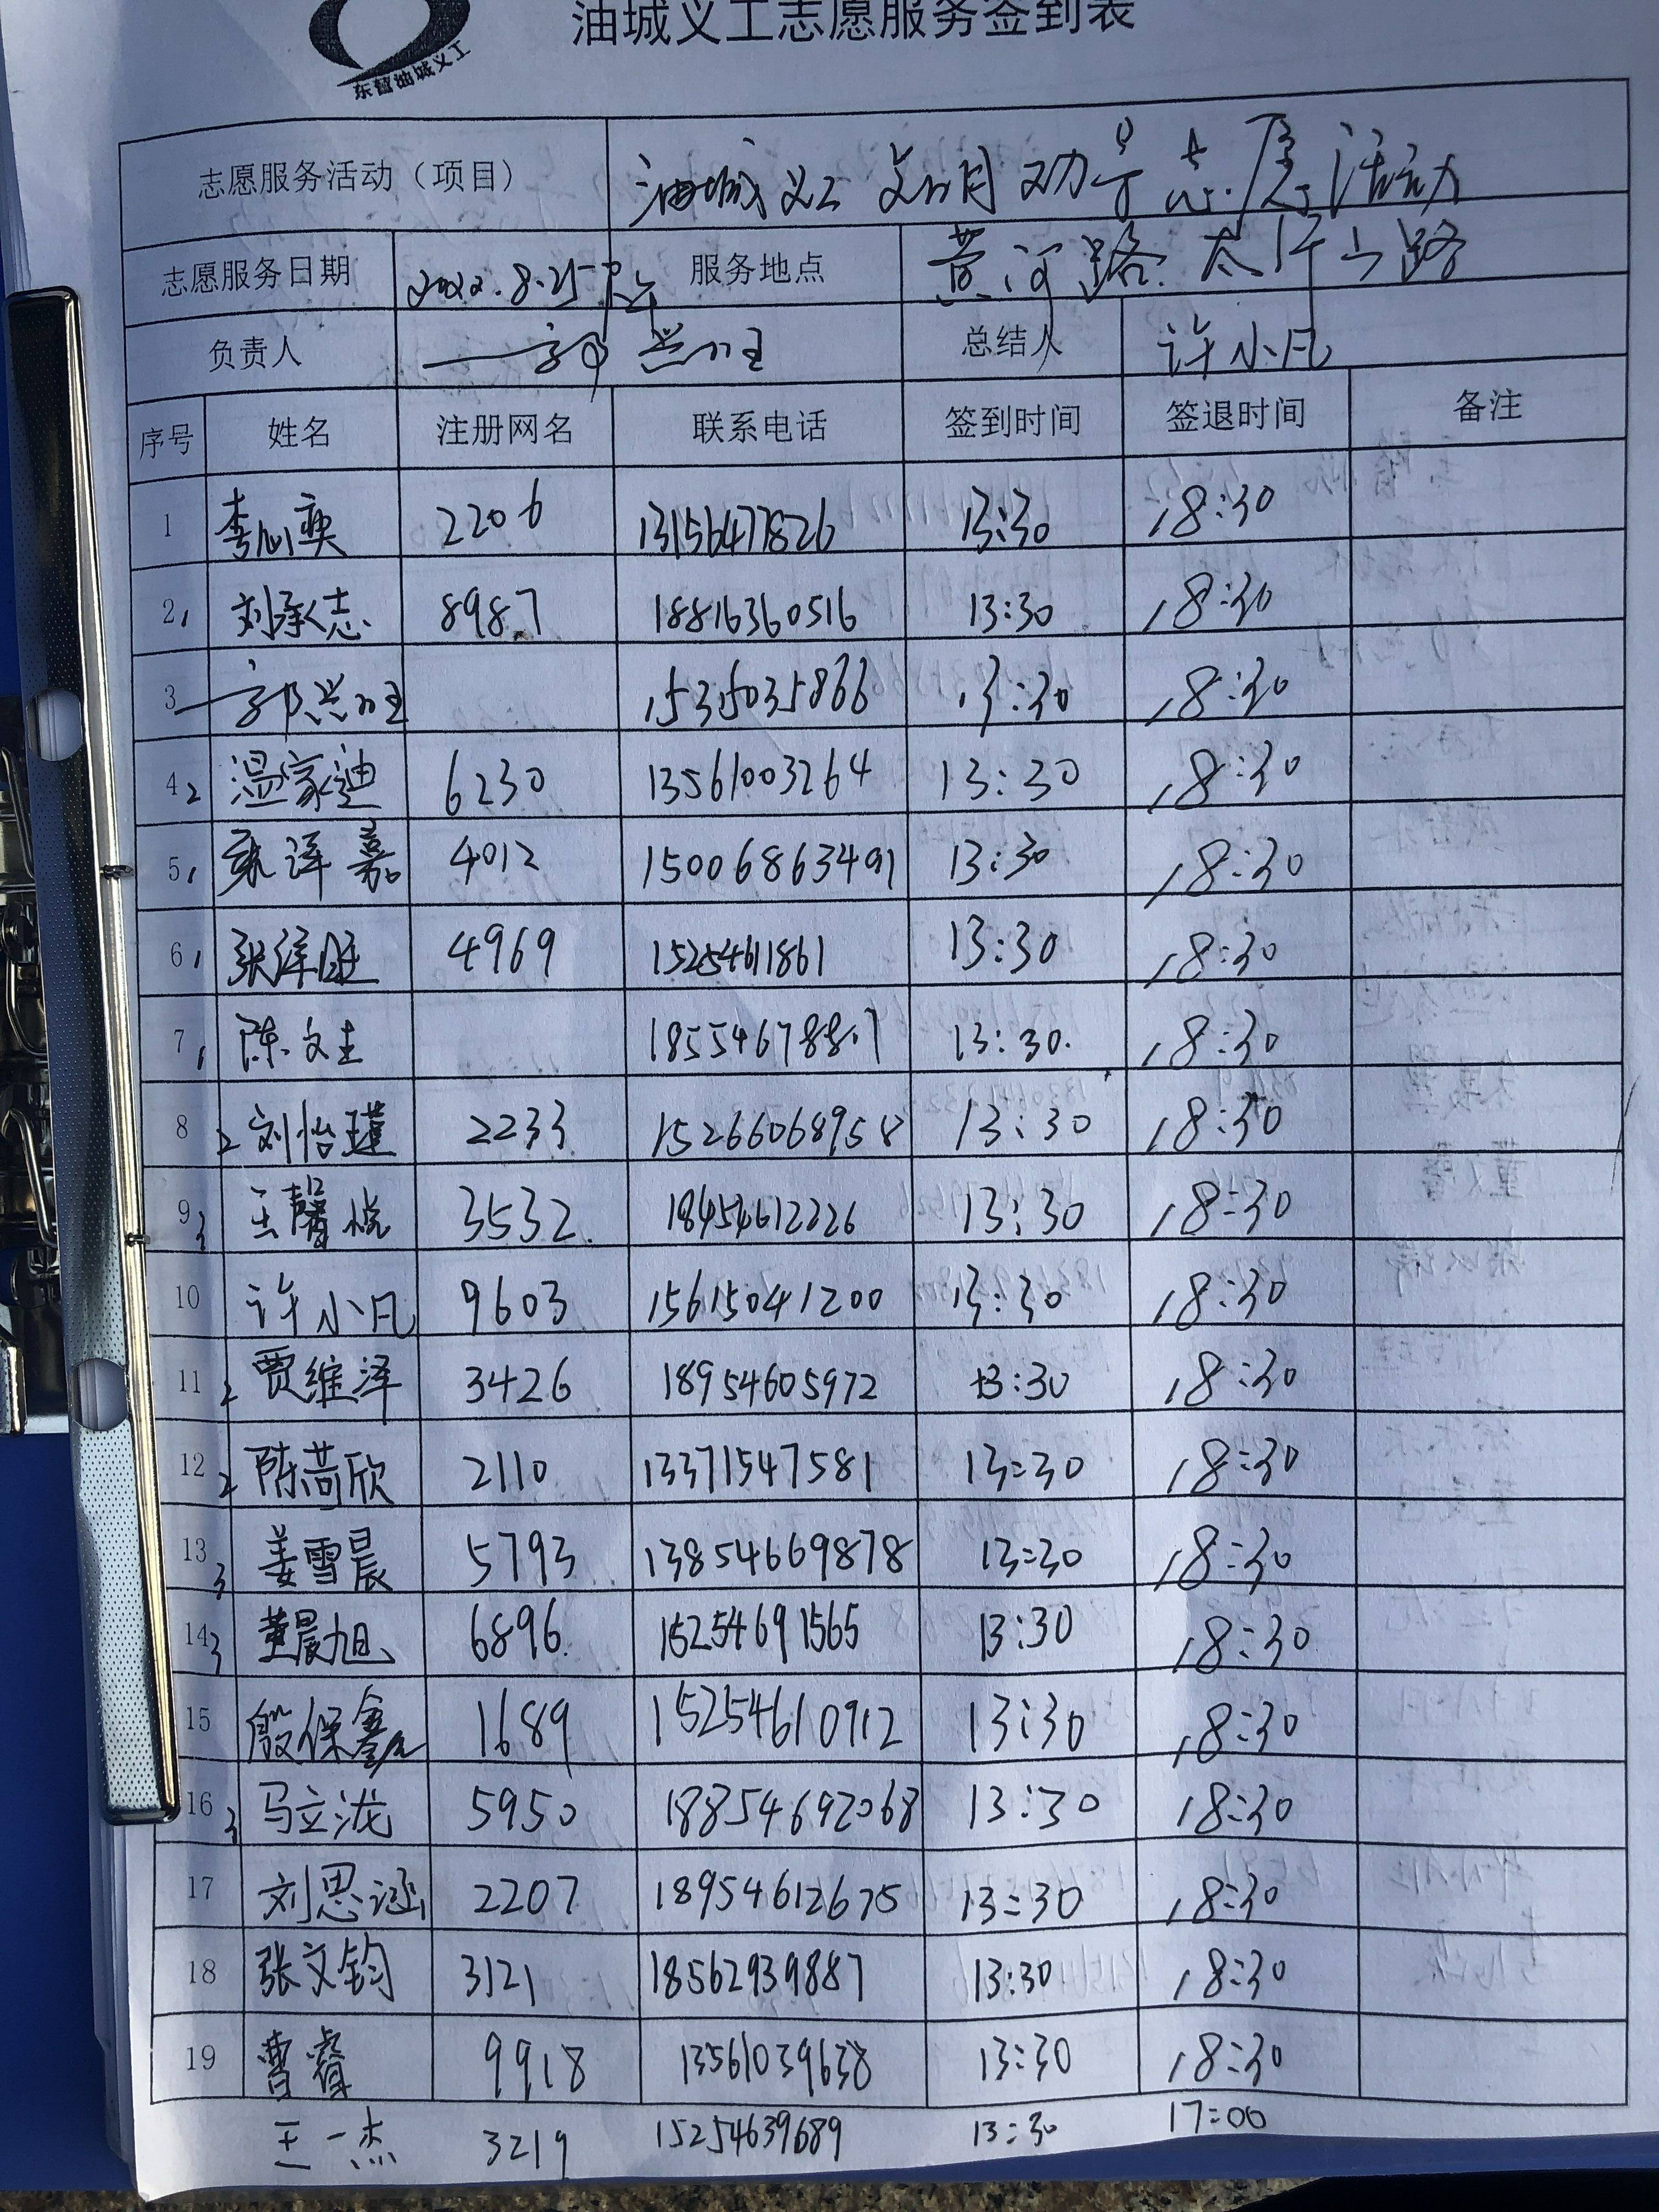 油城义工志愿服务签到表
东营油城义工
志愿服务活动（项目） 油城义工文明劝导志愿活动
志愿服务日期 2022.8.25下午 服务地点 黄河路太行山路
负责人 总结人 许小凡
序号 姓名 注册网名 联系电话 签到时间 签退时间 备注
1 李心奕 2206 13156477826 13:30 18:30
2 1 刘承志 8987 18816360516 13:30 18:30
3 15315035866 13:30 18:30
4 2 温家迪 6230 13561003264 13:30 18:30
5 1 泽嘉 4012 15006863491 13:30 18:30
6 1 张洋旺 4969 15254611861 13:30 18:30
7 1 陈文生 18554678807 13:30 18:30
8 2 刘怡瑾 2233 15266068958 13:30 18:30
9 3 王馨悦 3532 18454612226 13:30 18:30
10 许小凡 9603 15615041200 13:30 18:30
11 2 贾维泽 3426 18954605972 13:30 18:30
12 2 陈苘欣 2110 13371547581 13:30 18:30
13 3 姜雪晨 5793 13854669878 13:30 18:30
14 3 董晨旭 6896 15254691565 13:30 18:30
15 殷保鑫 1689 15254610912 13:30 18:30
16 3 马立泷 5950 18854692068 13:30 18:30
17 刘思涵 2207 18954612675 13:30 18:30
18 张文钧 3121 18562939887 13:30 18:30
19 曹睿 9918 13561039638 13:30 18:30
王一杰 3219 15254639689 13:30 17:00